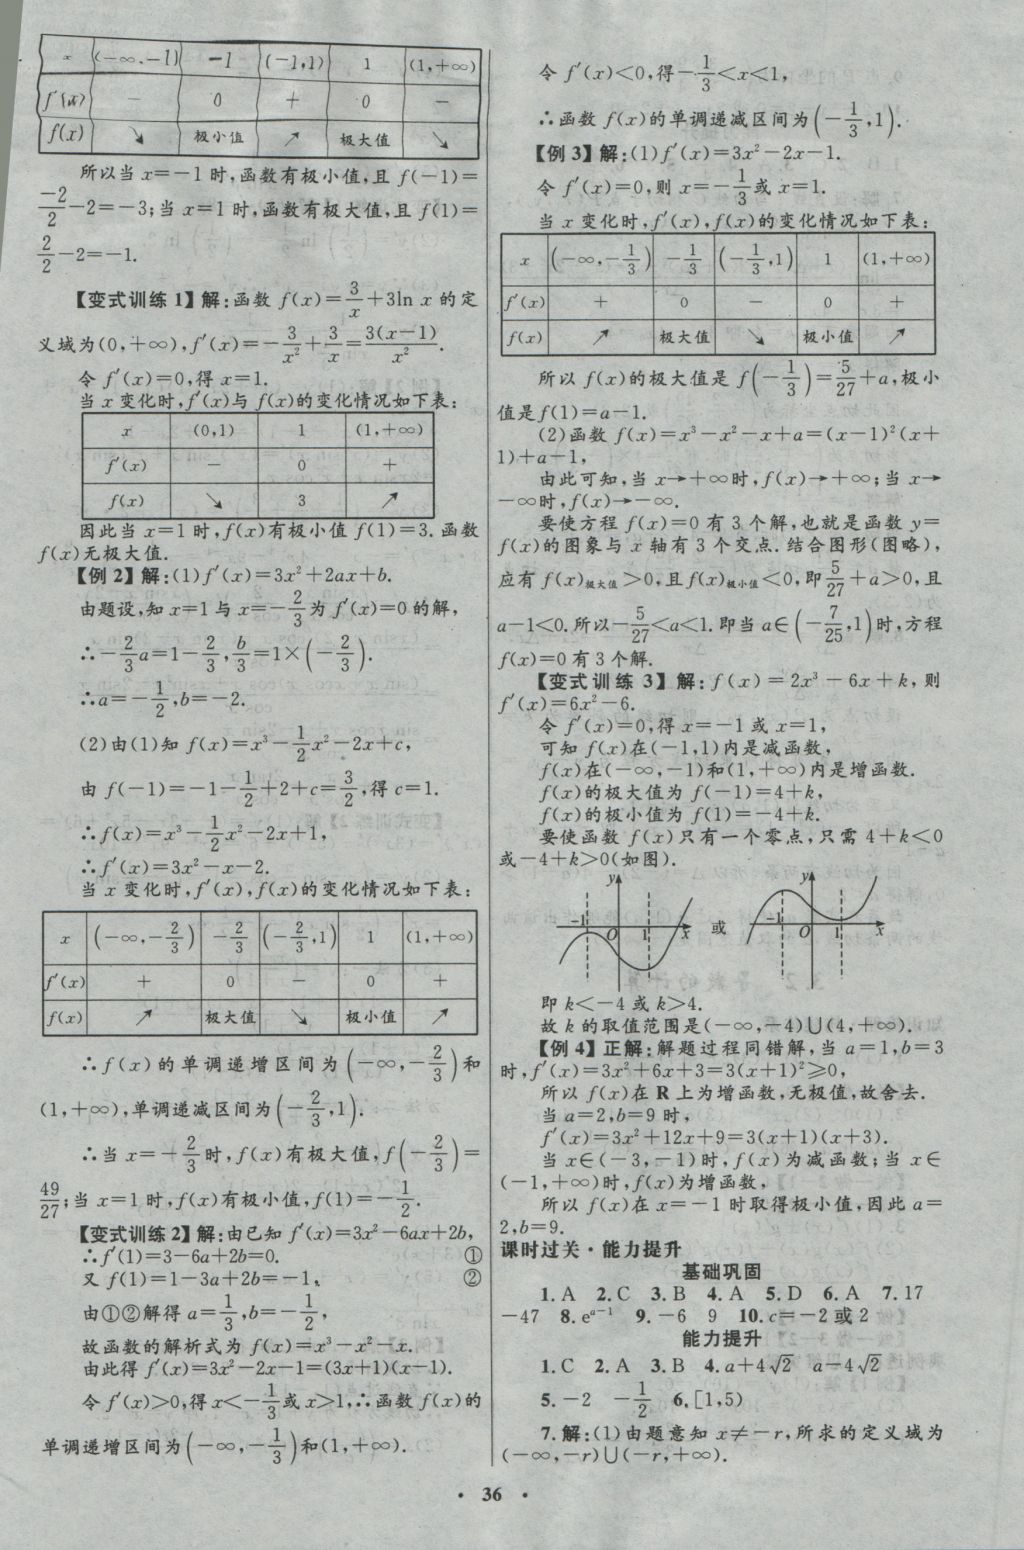 x (-∞,-1) -1 (-1,1) 1 (1,+∞)
f′(x) - 0 + 0 -
f(x) ↘ 极小值 ↗ 极大值 ↘
所以当 x=-1 时,函数有极小值,且 f(-1)=
-2/2-2=-3;当 x=1 时,函数有极大值,且 f(1)=
2/2-2=-1.
【变式训练 1】解:函数 f(x)=3/x+3ln x 的定
义域为(0,+∞),f′(x)=-3/x²+3/x=3(x-1)/x².
令 f′(x)=0,得 x=1.
当 x 变化时,f′(x)与 f(x)的变化情况如下表:
x (0,1) 1 (1,+∞)
f′(x) - 0 +
f(x) ↘ 3 ↗
因此当 x=1 时,f(x)有极小值 f(1)=3.函数
f(x)无极大值.
【例 2】解:(1)f′(x)=3x²+2ax+b.
由题设,知 x=1 与 x=-2/3为 f′(x)=0 的解,
∴-2/3a=1-2/3,b/3=1×(-2/3).
∴a=-1/2,b=-2.
(2)由(1)知 f(x)=x³-1/2x²-2x+c,
由 f(-1)=-1-1/2+2+c=3/2,得 c=1.
∴f(x)=x³-1/2x²-2x+1,
∴f′(x)=3x²-x-2.
当 x 变化时,f′(x),f(x)的变化情况如下表:
x (-∞,-2/3) -2/3 (-2/3,1) 1 (1,+∞)
f′(x) + 0 - 0 +
f(x) ↗ 极大值 ↘ 极小值 ↗
∴f(x)的单调递增区间为(-∞,-2/3)和
(1,+∞),单调递减区间为(-2/3,1).
∴当 x=-2/3时,f(x)有极大值,f(-2/3)=
49/27;当 x=1 时,f(x)有极小值,f(1)=-1/2.
【变式训练 2】解:由已知 f′(x)=3x²-6ax+2b,
∴f′(1)=3-6a+2b=0. ①
又 f(1)=1-3a+2b=-1, ②
由①②解得 a=1/3,b=-1/2,
故函数的解析式为 f(x)=x³-x²-x.
由此得 f′(x)=3x²-2x-1=(3x+1)(x-1).
令 f′(x)>0,得 x<-1/3或 x>1,∴函数 f(x)的
单调递增区间为(-∞,-1/3)和(1,+∞).
令 f′(x)<0,得-1/3<x<1,
∴函数 f(x)的单调递减区间为(-1/3,1).
【例 3】解:(1)f′(x)=3x²-2x-1.
令 f′(x)=0,则 x=-1/3或 x=1.
当 x 变化时,f′(x),f(x)的变化情况如下表:
x (-∞,-1/3) -1/3 (-1/3,1) 1 (1,+∞)
f′(x) + 0 - 0 +
f(x) ↗ 极大值 ↘ 极小值 ↗
所以 f(x)的极大值是 f(-1/3)=5/27+a,极小
值是f(1)=a-1.
(2)函数 f(x)=x³-x²-x+a=(x-1)²(x+
1)+a-1,
由此可知,当 x→+∞时,f(x)→+∞;当 x→
-∞时,f(x)→-∞.
要使方程 f(x)=0 有 3 个解,也就是函数 y=
f(x)的图象与 x 轴有 3 个交点.结合图形(图略),
应有 f(x)极大值>0,且f(x)极小值<0,即5/27+a>0,且
a-1<0.所以-5/27<a<1.即当 a∈(-7/25,1)时,方程
f(x)=0 有 3 个解.
【变式训练 3】解:f(x)=2x³-6x+k,则
f′(x)=6x²-6.
令 f′(x)=0,得 x=-1 或 x=1,
可知 f(x)在(-1,1)内是减函数,
f(x)在(-∞,-1)和(1,+∞)内是增函数.
f(x)的极大值为 f(-1)=4+k,
f(x)的极小值为 f(1)=-4+k.
要使函数 f(x)只有一个零点,只需 4+k<0
或-4+k>0(如图).
y -1 O 1 x 或 y -1 O 1 x
即 k<-4 或 k>4.
故 k 的取值范围是(-∞,-4)∪(4,+∞).
【例 4】正解:解题过程同错解,当 a=1,b=3
时,f′(x)=3x²+6x+3=3(x+1)²≥0,
所以 f(x)在 R 上为增函数,无极值,故舍去.
当 a=2,b=9 时,
f′(x)=3x²+12x+9=3(x+1)(x+3).
当 x∈(-3,-1)时,f(x)为减函数;当 x∈
(-1,+∞)时,f(x)为增函数,
所以 f(x)在 x=-1 时取得极小值,因此 a=
2,b=9.
课时过关·能力提升
基础巩固
1.A 2.C 3.B 4.A 5.D 6.A 7.17
-47 8.eᵃ⁻¹ 9.-6 9 10.c=-2或2
能力提升
1.C 2.A 3.B 4.a+4√2 a-4√2
5.-2 -1/2 6.[1,5)
7.解:(1)由题意知 x≠-r,所求的定义域为
(-∞,-r)∪(-r,+∞).
· 36 ·